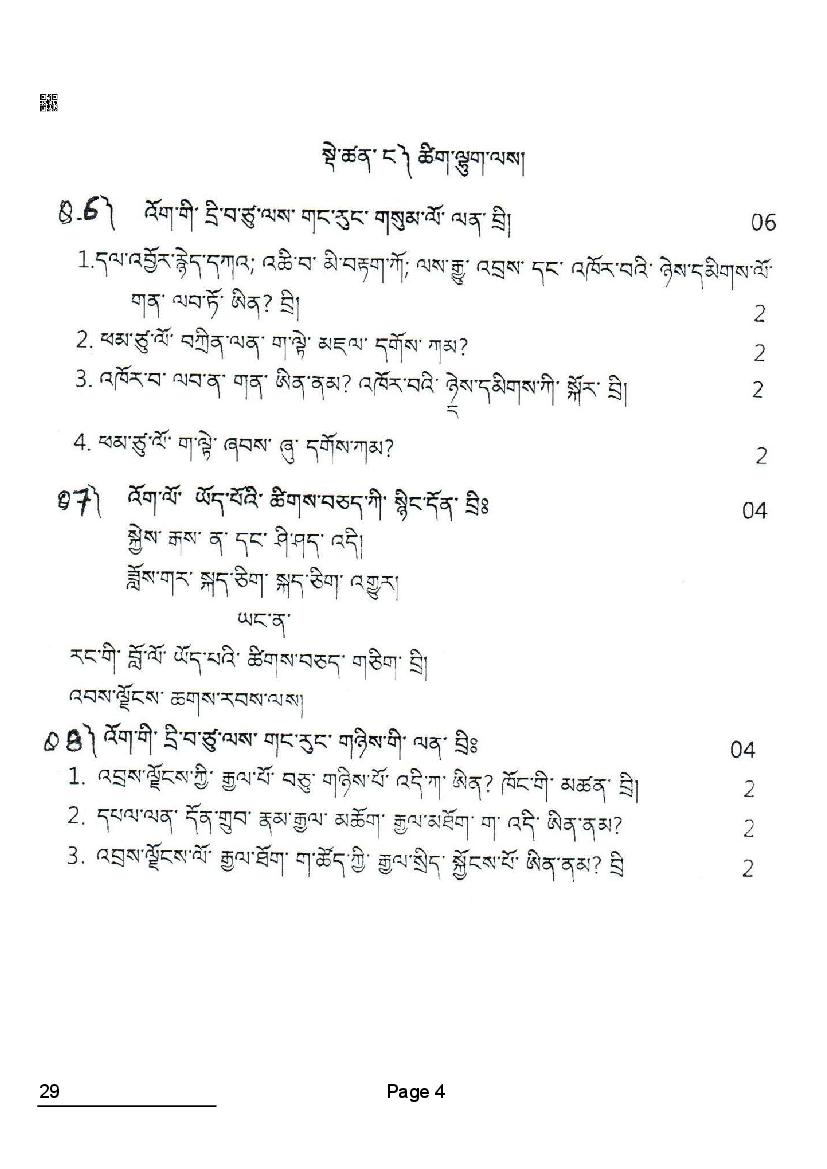 སྡེ་ཚན་ ང༽ ཚིག་ལྷུག་ལས།
Q.6༽ འོག་གི་ དྲི་བ་ཙུ་ལས་ གང་རུང་ གསུམ་ལོ་ ལན་ བྲི།	06
1.དལ་འབྱོར་རྙེད་དཀའ; འཆི་བ་ མི་བརྟག་ཀོ; ལས་རྒྱུ་ འབྲས་ དང་ འཁོར་བའི་ ཉེས་དམིགས་ལོ་
གན་ ལབ་ཏོ་ ཨིན? བྲི།	2
2. ཕམ་ཙུ་ལོ་ བཀྲིན་ལན་ ག་ལྟེ་ མཇལ་ དགོས་ ཀམ?	2
3. འཁོར་བ་ ལབ་ན་ གན་ ཨིན་ནམ? འཁོར་བའི་ ཉེས་དམིགས་ཀི་ སྐོར་ བྲི།	2
4. ཕམ་ཙུ་ལོ་ ག་ལྟེ་ ཞབས་ ཞུ་ དགོས་ཀམ?	2
Q7༽ འོག་ལོ་ ཡོད་པོའི་ ཚིགས་བཅད་ཀི་ སྙིང་དོན་ བྲིཿ	04
སྐྱེས་ རྒས་ ན་ དང་ ཤི་ཤད་ འདི།
ཟློས་གར་ སྐད་ཅིག་ སྐད་ཅིག་ འགྱུར།
ཡང་ན་
རང་གི་ བློ་ལོ་ ཡོད་པའི་ ཚིགས་བཅད་ གཅིག་ བྲི།
འབས་ལྗོངས་ ཆགས་རབས་ལས།
Q8༽ འོག་གི་ དྲི་བ་ཙུ་ལས་ གང་རུང་ གཉིས་གི་ ལན་ བྲིཿ	04
1. འབྲས་ལྗོངས་ཀྱི་ རྒྱལ་པོ་ བཅུ་ གཉིས་པོ་ འདི་ཀ་ ཨིན? ཁོང་གི་ མཚན་ བྲི།	2
2. དཔལ་ལན་ དོན་གྲུབ་ རྣམ་རྒྱལ་ མཆོག་ རྒྱལ་མཐོག་ ག་ འདི་ ཨིན་ནམ?	2
3. འབྲས་ལྗོངས་ལོ་ རྒྱལ་ཐོག་ ག་ཚོད་ཀྱི་ རྒྱལ་སྲིད་ སྐྱོངས་པོ་ ཨིན་ནམ? བྲི	2
29	Page 4